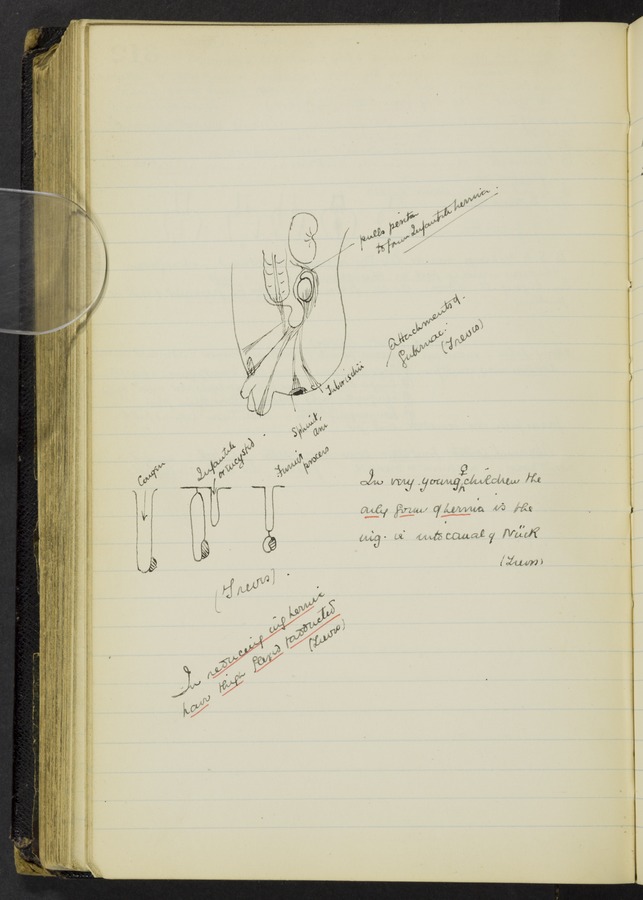 pulls perito
to form Infantile hernia.
Attachments of
Gubernac:
(Treves)
Tuber ischii
Sphinct.
ani
Congen
Infantile
or encysted.
Funic
process
In very young ♀ children the
only form of hernia is the
ing. ie into canal of Nück
(Treves)
(Treves).
In reducing ing hernia
have thigh flexed & adducted
(Treves)